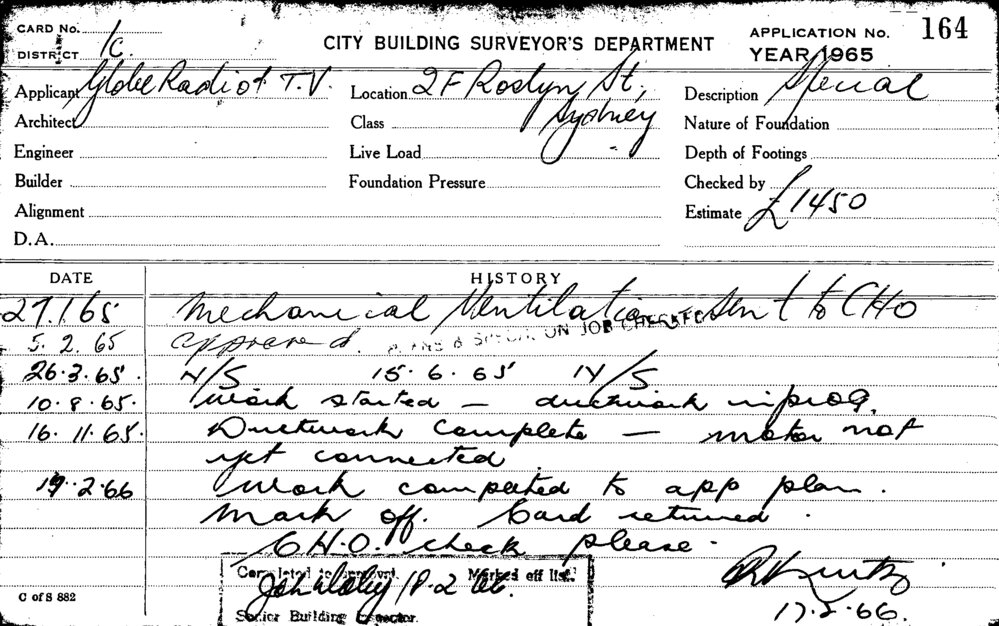 CARD No.
DISTRICT 1C.
CITY BUILDING SURVEYOR'S DEPARTMENT
APPLICATION No. 164
YEAR 1965
Applicant Globe Radio & T.V.
Location 2F Roslyn St,
Sydney
Description Special
Architect
Class
Nature of Foundation
Engineer
Live Load
Depth of Footings
Builder
Foundation Pressure
Checked by
Alignment
Estimate £1450
D.A.
DATE HISTORY
27.1.65 Mechanical Ventilation sent to CHO
5.2.65 approved. PLANS & SPECIFN. ON JOB CHECKED
26.3.65. N/S 15.6.65 N/S
10.8.65. Work started — ductwork in prog.
16.11.65. Ductwork complete — motor not
yet connected.
17.2.66 Work completed to app plan.
Mark off. Card returned.
C.H.O. check please.
Completed to approval. Marked off list.
18.2.66.
Senior Building Inspector.
17.2.66.
C of S 882